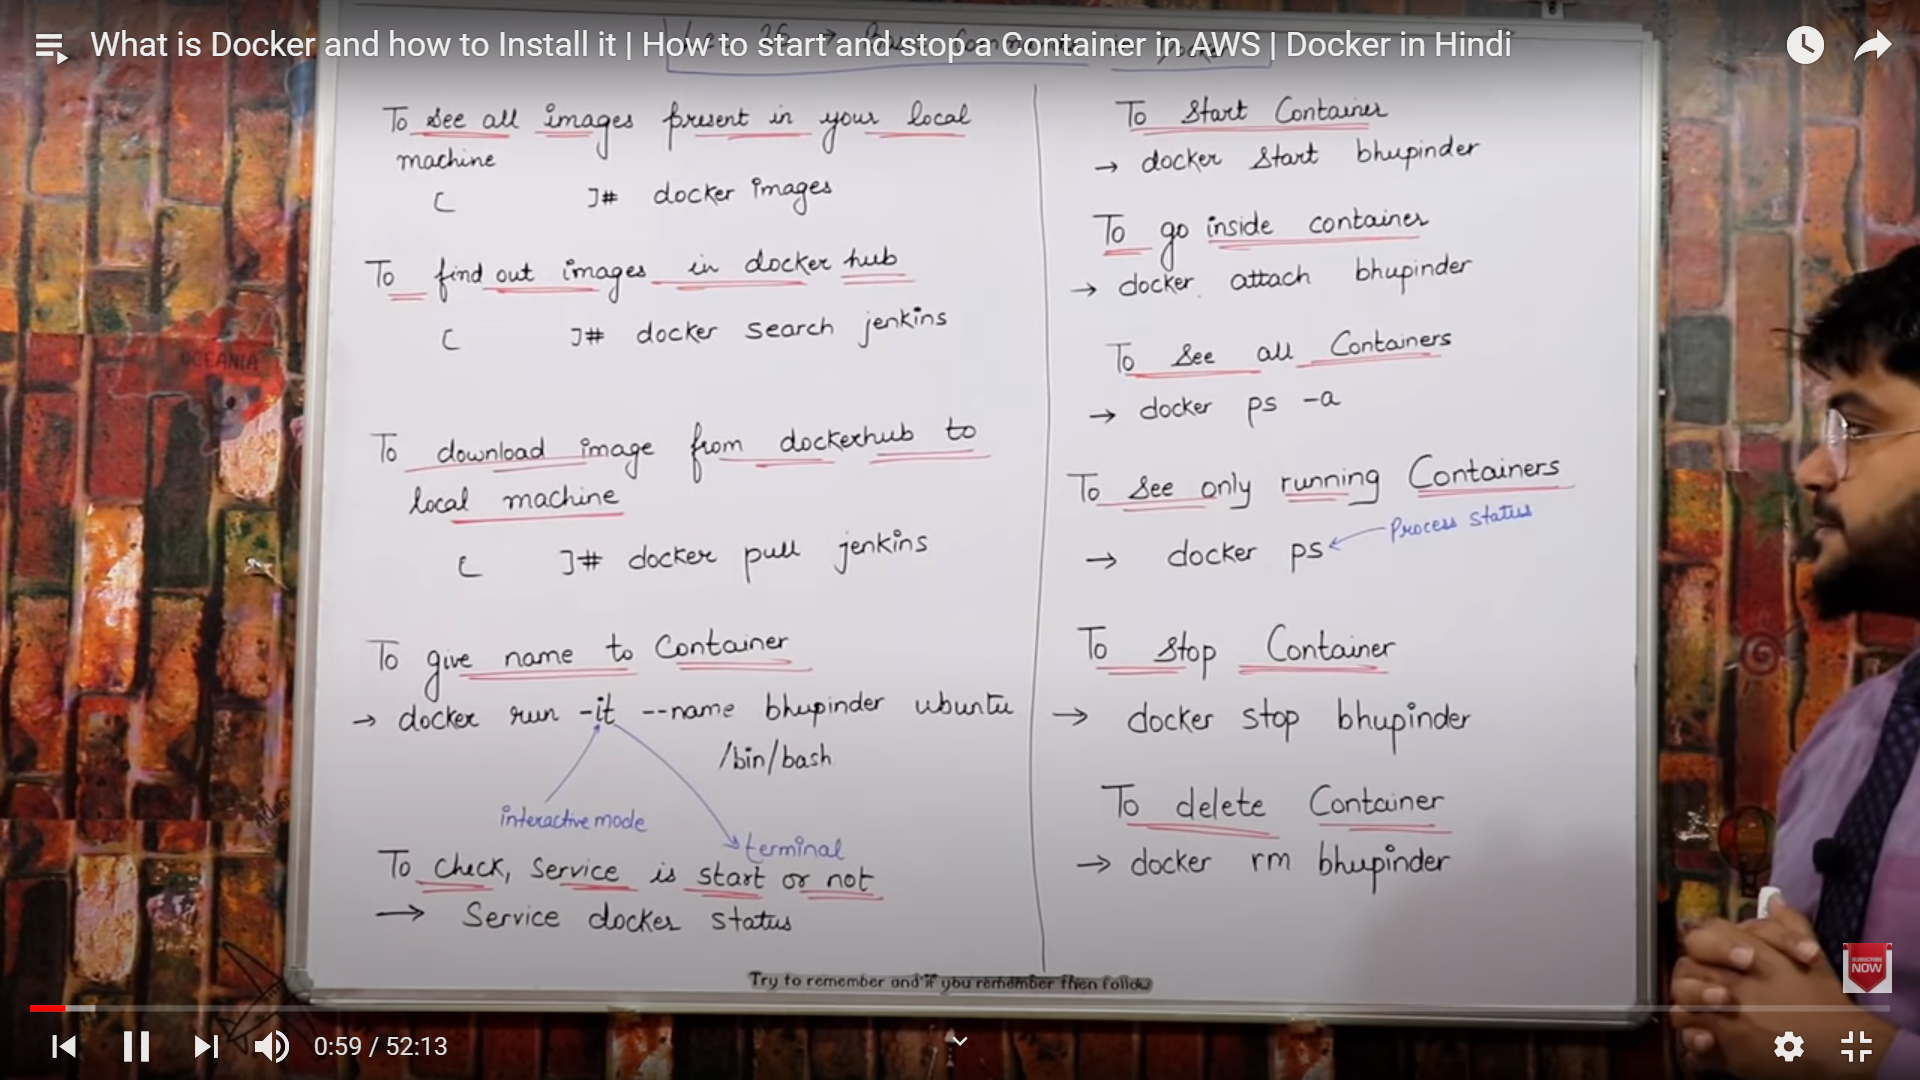 What is Docker and how to Install it | How to start and stop a Container in AWS | Docker in Hindi
To see all images present in your local
machine
[ ]# docker images
To find out images in docker hub
[ ]# docker search jenkins
To download image from dockerhub to
local machine
[ ]# docker pull jenkins
To give name to Container
→ docker run -it --name bhupinder ubuntu
/bin/bash
interactive mode
terminal
To check, service is start or not
→ Service docker status
To Start Container
→ docker start bhupinder
To go inside container
→ docker attach bhupinder
To see all Containers
→ docker ps -a
To see only running Containers
Process status
→ docker ps
To stop Container
→ docker stop bhupinder
To delete Container
→ docker rm bhupinder
Try to remember and if you remember then follow
OCEANIA
SUBSCRIBE
NOW
0:59 / 52:13